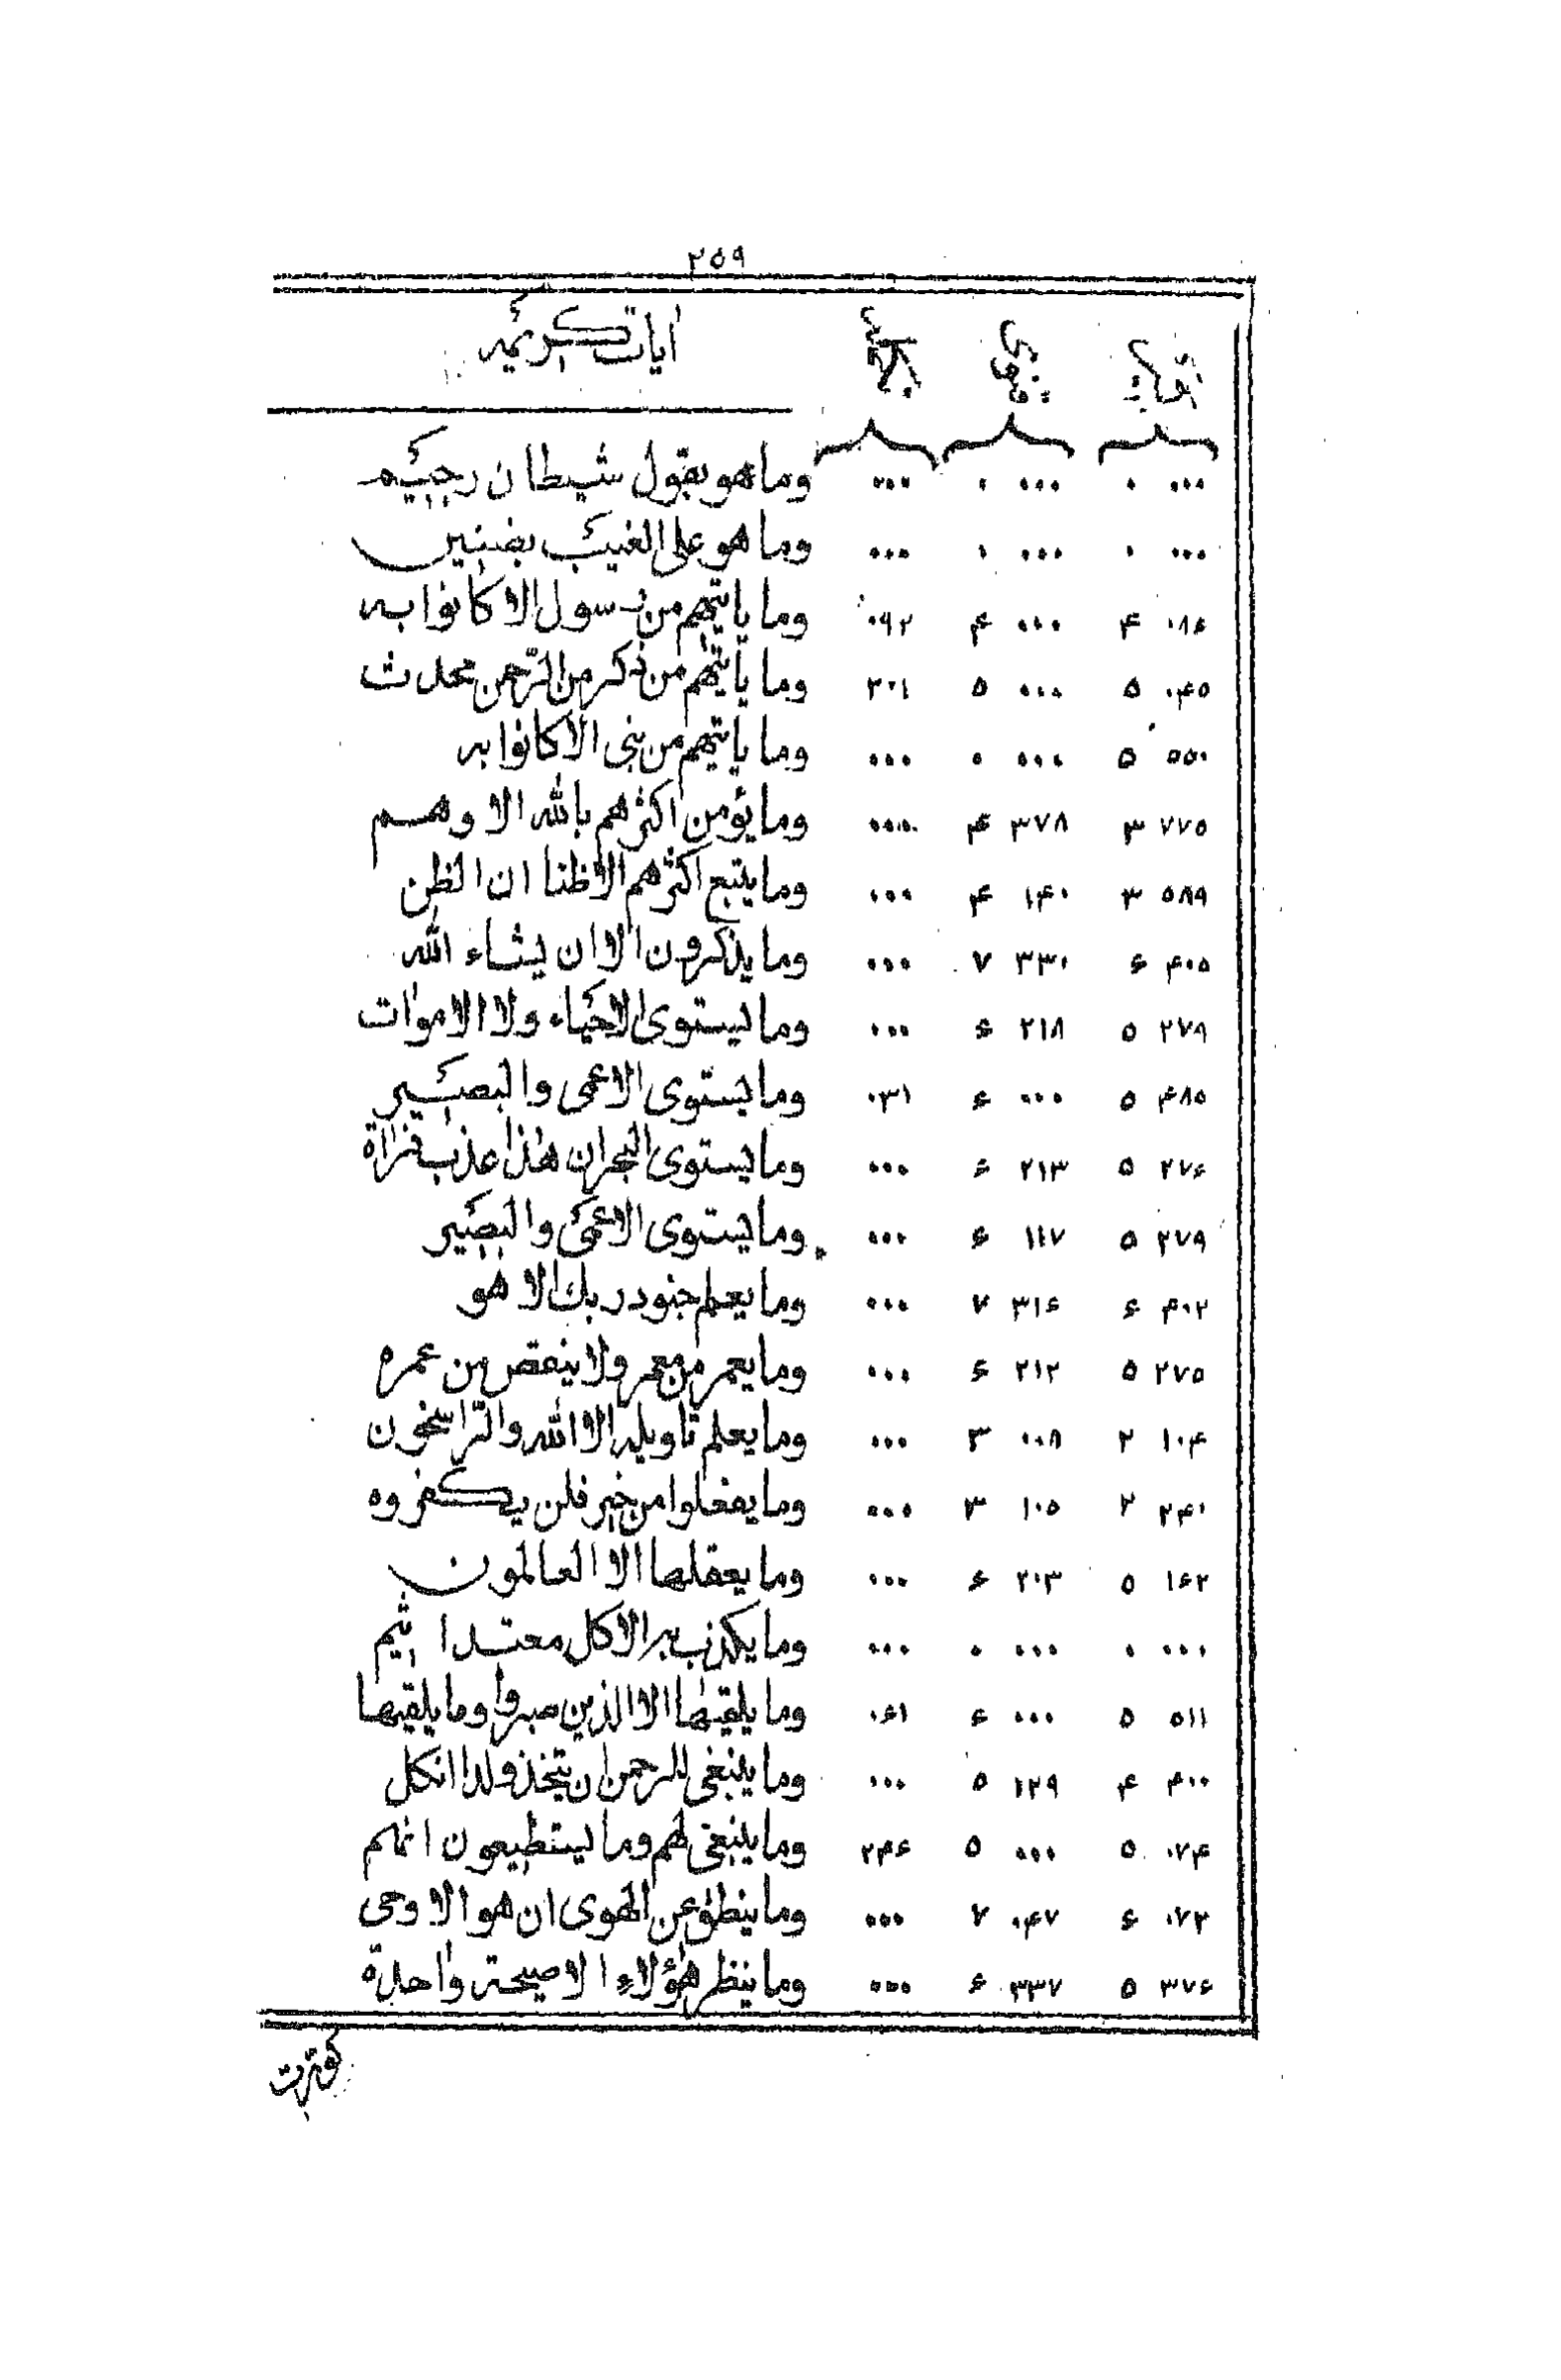 ۲۵۹
آیات کریمه
۰۰۰ ۰ ۰۰۰ ۰ ۰۰۰ وما هو بقول شیطان رجیم
۰۰۰ ۰ ۰۰۰ ۰ ۰۰۰ وما هو علی الغیب بضنین
۰۸۶ ۴ ۰۰۰ ۴ ۰۹۲ وما یاتیهم من رسول الا کانوا به
۰۴۵ ۵ ۰۰۰ ۵ ۳۰۱ وما یاتیهم من ذکر من الرحمن محدث
۵۵۰ ۵ ۰۰۰ ۰ ۰۰۰ وما یاتیهم من نبی الا کانوا به
۷۷۵ ۳ ۳۷۸ ۴ ۰۰۰ وما یؤمن اکثرهم بالله الا وهم
۵۸۹ ۳ ۱۴۰ ۴ ۰۰۰ وما یتبع اکثرهم الا ظنا ان الظن
۴۰۵ ۶ ۳۳۰ ۷ ۰۰۰ وما یذکرون الا ان یشاء الله
۲۷۹ ۵ ۲۱۸ ۶ ۰۰۰ وما یستوی الاحیاء ولا الاموات
۴۸۵ ۵ ۰۰۰ ۶ ۰۳۱ وما یستوی الاعمی والبصیر
۲۷۶ ۵ ۲۱۳ ۶ ۰۰۰ وما یستوی البحران هذا عذب فراة
۲۷۹ ۵ ۱۱۷ ۶ ۰۰۰ وما یستوی الاعمی والبصیر
۴۰۲ ۶ ۳۱۶ ۷ ۰۰۰ وما یعلم جنود ربک الا هو
۲۷۵ ۵ ۲۱۲ ۶ ۰۰۰ وما یعمر من معمر ولا ینقص من عمره
۱۰۴ ۲ ۰۰۸ ۳ ۰۰۰ وما یعلم تاویله الا الله والراسخون
۲۴۰ ۲ ۱۰۵ ۳ ۰۰۰ وما یفعلوا من خیر فلن یکفروه
۱۶۲ ۵ ۲۰۳ ۶ ۰۰۰ وما یعقلها الا العالمون
۰۰۰ ۰ ۰۰۰ ۰ ۰۰۰ وما یکذب به الا کل معتد اثیم
۵۱۱ ۵ ۰۰۰ ۶ ۰۶۱ وما یلقیها الا الذین صبروا وما یلقیها
۴۰۰ ۴ ۱۲۹ ۵ ۰۰۰ وما ینبغی للرحمن ان یتخذ ولدا ان کل
۰۷۴ ۵ ۰۰۰ ۵ ۲۴۶ وما ینبغی لهم وما یستطیعون انهم
۰۷۲ ۶ ۰۴۷ ۷ ۰۰۰ وما ینطق عن الهوی ان هو الا وحی
۳۷۶ ۵ ۳۳۷ ۶ ۰۰۰ وما ینظر هؤلاء الا صیحة واحدة